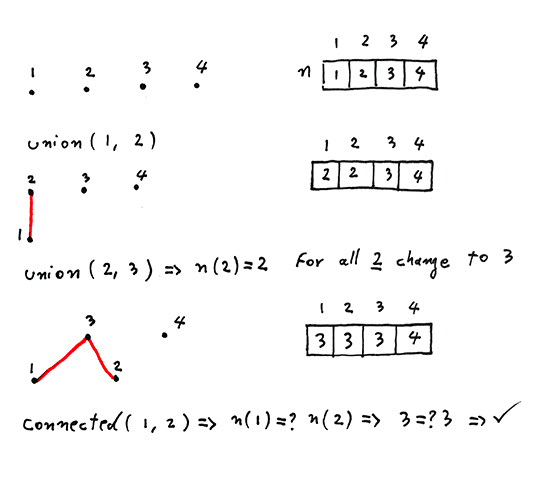 1 2 3 4
1 2 3 4
n 1 2 3 4
union(1, 2)
1 2 3 4
2 3 4
2 2 3 4
1
union(2, 3) => n(2)=2 For all 2 change to 3
1 2 3 4
3 4
3 3 3 4
1 2
Connected(1, 2) => n(1)=? n(2) => 3=?3 => ✓